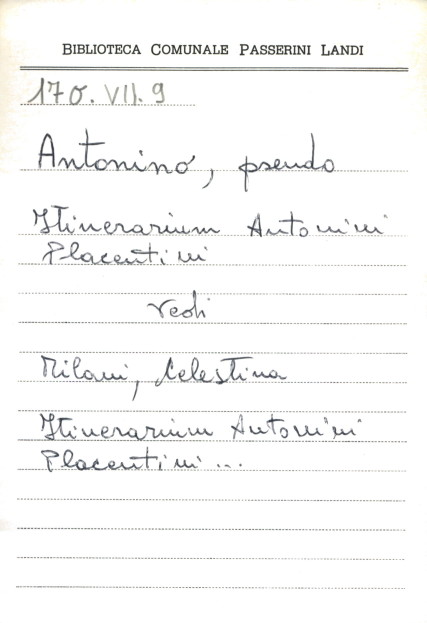 BIBLIOTECA COMUNALE PASSERINI LANDI
170.VII.9
Antonino, pseudo
Itinerarium Antonini
Placentini
vedi
Milani, Celestina
Itinerarium Antonini
Placentini...